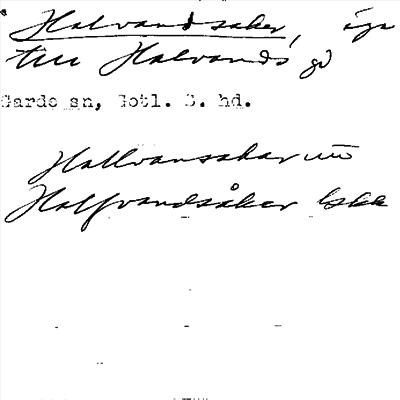 Halvandsaker, äga
till Halvands gd
Garde sn, Gotl. S. hd.
Hallvansakar
Halfvandsåker